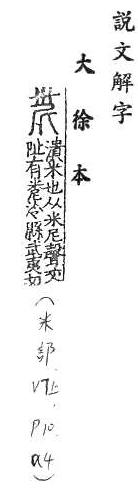 說文解字
大徐本
潰米也从米尼聲交
阯有𥹉泠縣武夷切
(米部.七上.P10.a4)